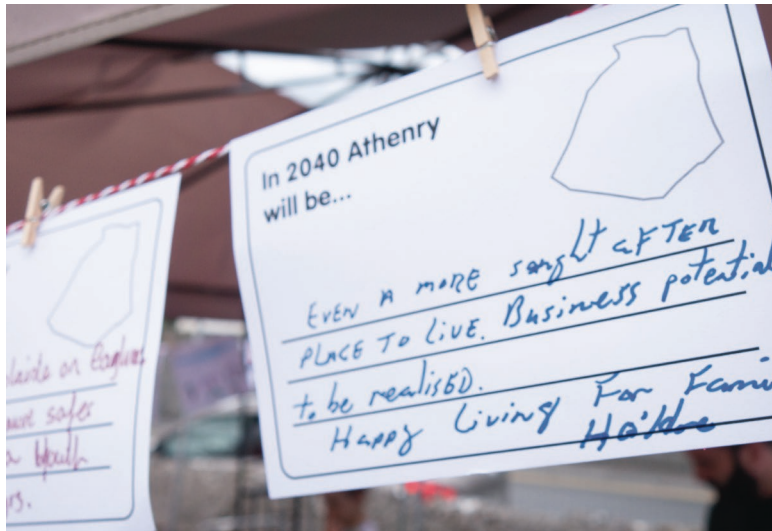 In 2040 Athenry
will be...
EVEN A MORE sought AFTER
PLACE TO LIVE. Business potential
to be realised.
Happy Living For Fami
on
safer